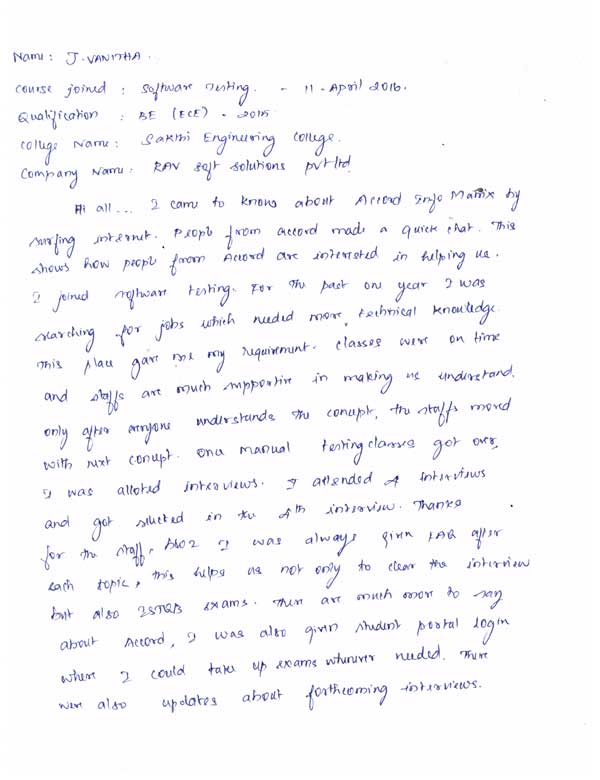 Name: J. VANITHA.
Course joined : Software Testing. - 11-April 2016.
Qualification : BE (ECE) - 2015
College Name: Sakthi Engineering College.
Company Name: RAV Soft Solutions Pvt Ltd
Hi all... I came to know about Accord Info Matrix by
surfing internet. People from accord made a quick chat. This
shows how people from Accord are interested in helping us.
I joined software testing. For the past one year I was
searching for jobs which needed more technical knowledge.
This place gave me my requirement. Classes were on time
and staffs are much supportive in making us understand.
only after everyone understands the concept, the staffs moved
with next concept. Once manual testing classes got over,
I was alloted interviews. I attended 4 interviews
and got selected in the 4th interview. Thanks
for the staff. I was always given FAQ after
each topic, this helps us not only to clear the interview
but also ISTQB exams. There are much more to say
about Accord, I was also given student portal login
where I could take up exams whenever needed. There
were also updates about forthcoming interviews.